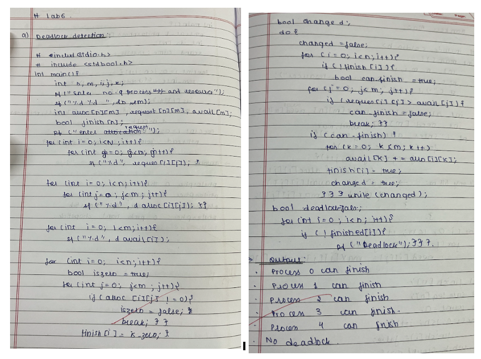 # Lab 6.
a) Deadlock detection:
# include <stdio.h>
# include <stdbool.h>
int main(){
int n, m, i, j, k;
int alloc[n][m], request[n][m], avail[m];
bool finish[n];
for (int i=0; i<n; i++){
for (int j=0; j<m; j++){
for (int i=0; i<n; i++){
for (int j=0; j<m; j++){
for (int i=0; i<m; i++){
for (int i=0; i<n; i++){
bool iszero = true;
for (int j=0; j<m; j++){
if (alloc [i][j] != 0){
iszero = false;
break; } }
bool changed;
do {
changed = false;
for (i=0; i<n; i++){
if (!finish [i]){
bool canfinish = true;
for (j=0; j<m; j++){
if (request[i][j] > avail[j]){
can finish = false;
break; } }
if (can finish) {
for (k=0; k<m; k++)
avail[k] += alloc[i][k];
finish[i] = true;
changed = true;
} } } while (changed);
for (int i=0; i<n; i++){
if (!finished[i]){
pf ("Deadlock"); } } }.
Output:
Process 0 can finish
Process 1 can finish
Process 2 can finish
Process 3 can finish.
Process 4 can finish
No deadlock.